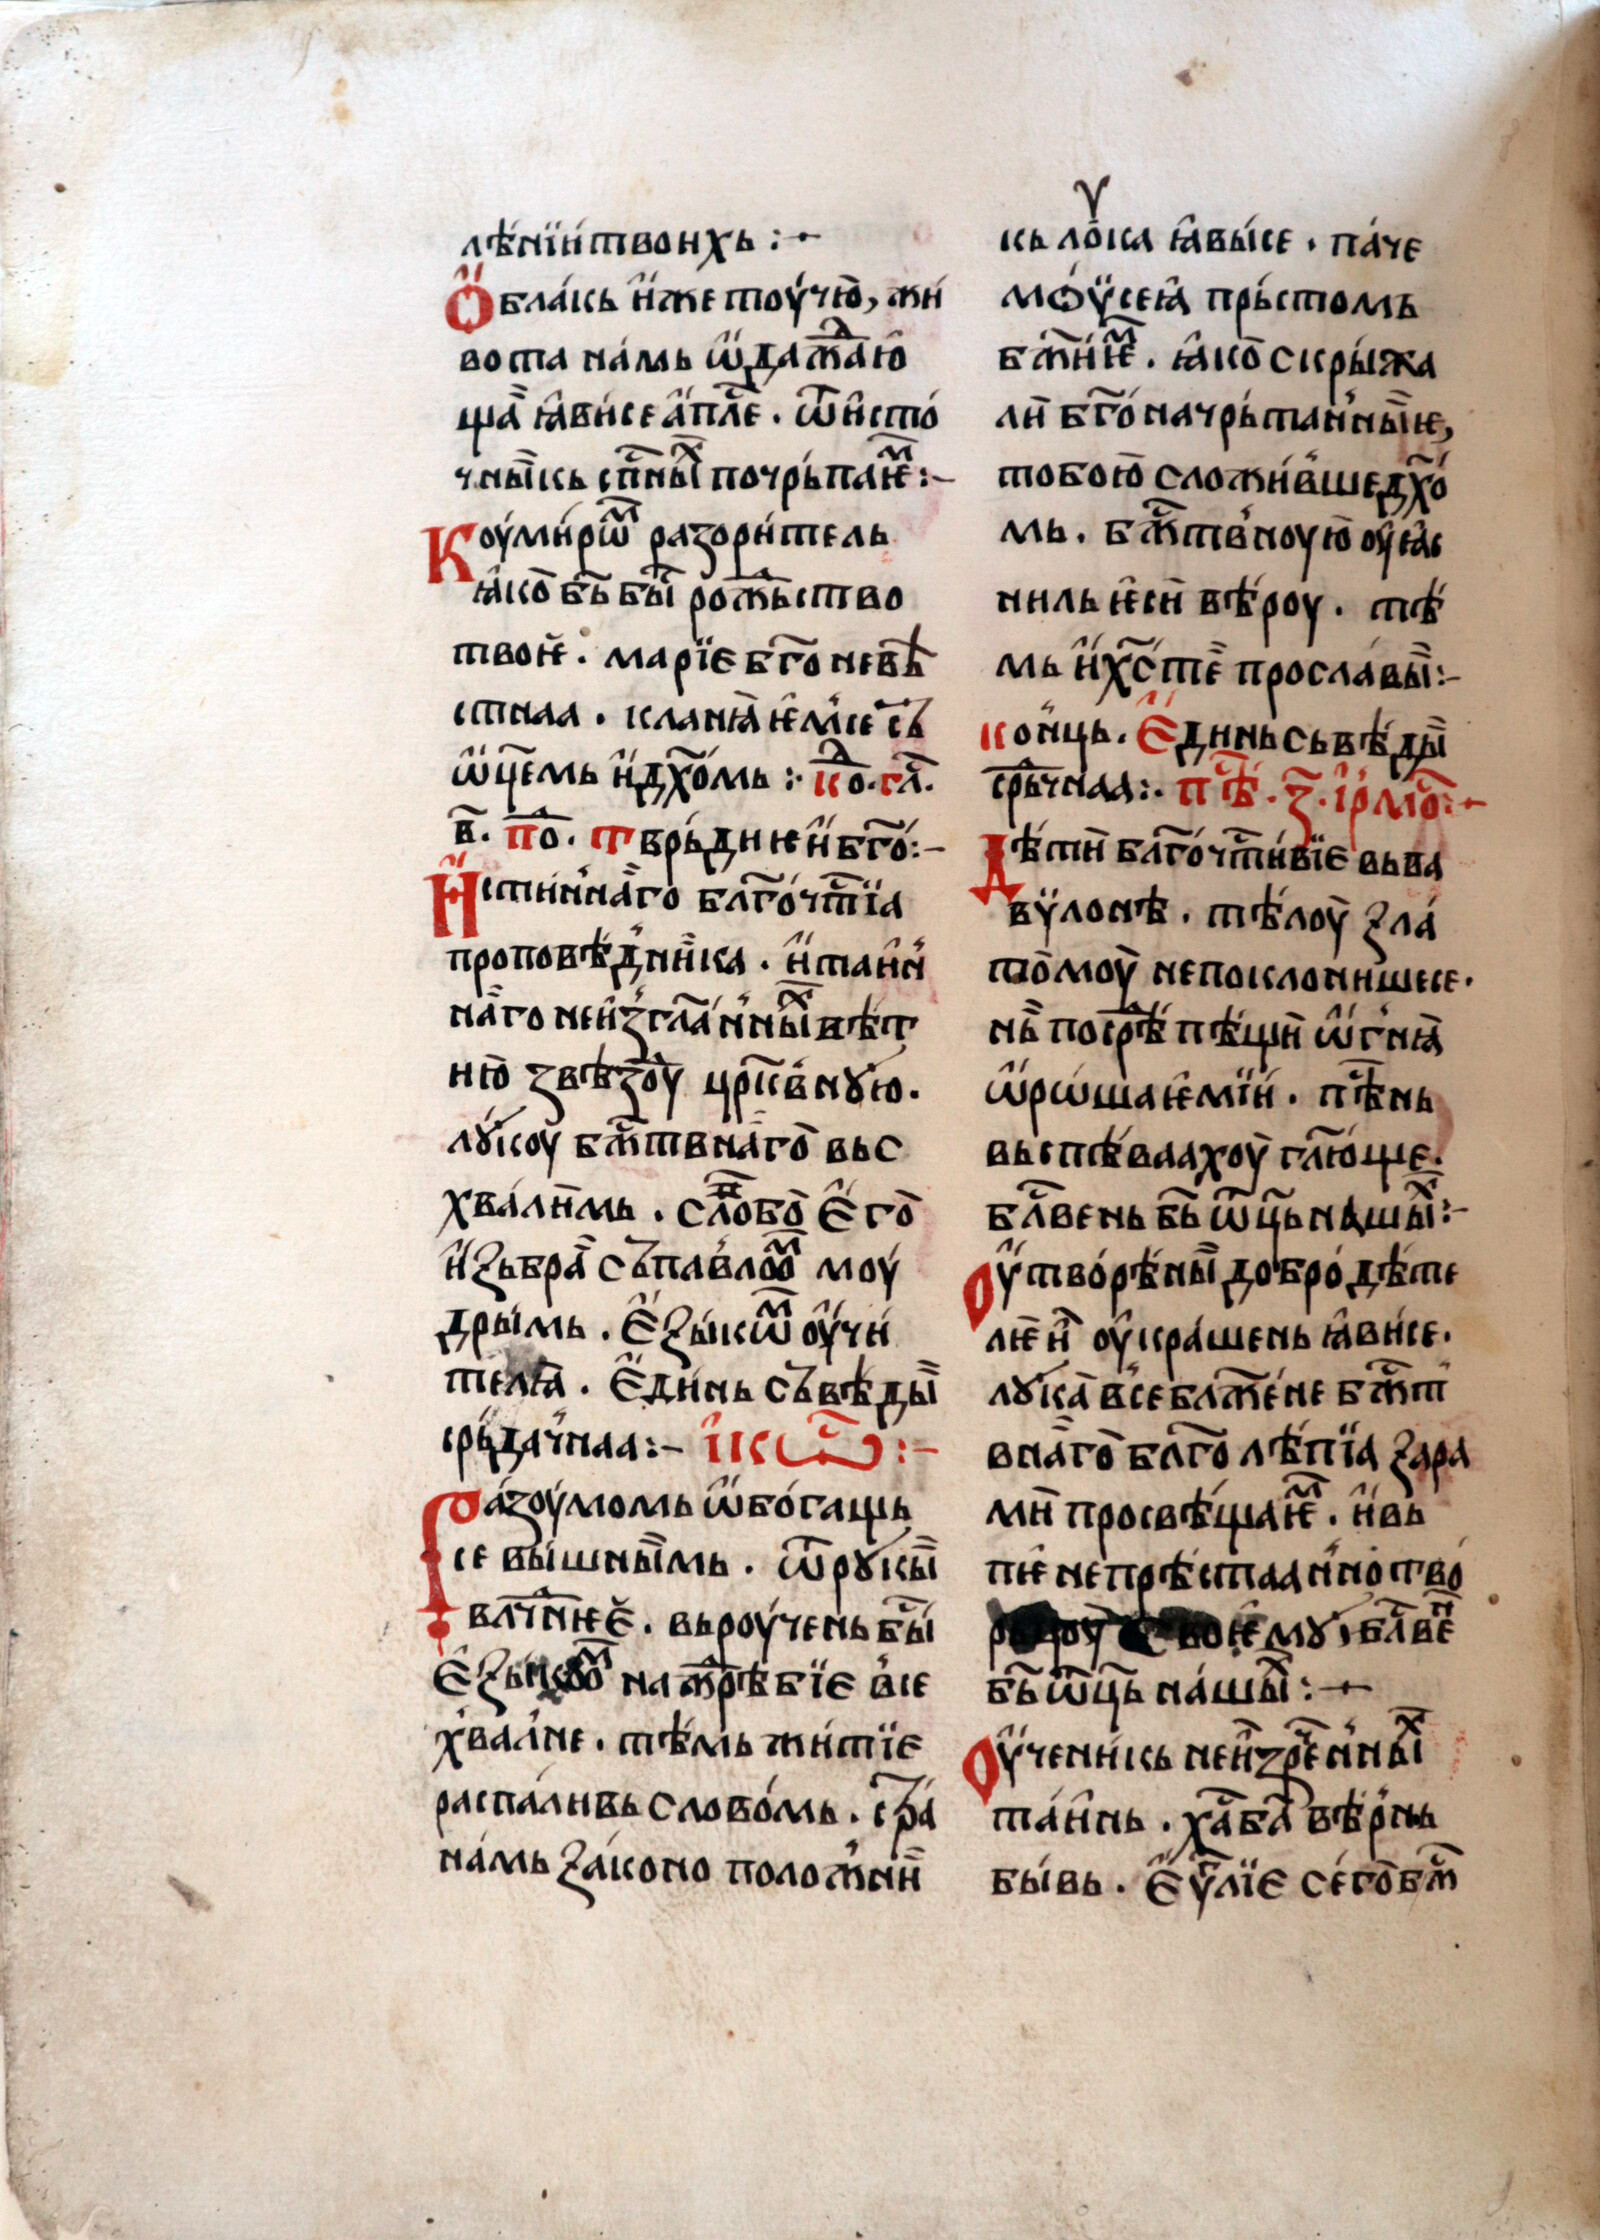 лѣ́нїи́ твоихь :·
Ѡ҆блáкь и҆́же тоу́чю̀, жи
вота на́мь ѡ҆̀дажⷣаю
ща̀ ꙗ҆ви́се а҆́пл҃е · ѿи҆сто́
чны̏кь сп҃сныⷯ почрьпаѥⷨ :–
Коу́ми́рѡⷨ разори́тель
ꙗ҆́ко б҃ь бы̑ рожⷣьство
твоѥ̀ · марїѐ бг҃оневѣ
стнаа · кланꙗѥмсе съ
ѡ҆ц҃емь и҆дх҃о́мь :· коⷣ · гл҃а ·
в҃ · поⷣ · тврьди ѥ҆и бг҃о́ :–
И҆́стин́на̏го блг҃о́чтⷭ҇їа
проповѣ́дни̏ка · и҆таи҆н́
на̏го неиꙁгл҃а́н́ныⷯ вѣт
ню̀ ꙁвѣꙁоу̀ цр҃кв́нꙋю ·
лꙋ́коу бжⷭ҇твна̏го̀ вьс
хва́ли̏мь · сло́во̀ є҆го̀
и҆ꙁьбра̏ съпа́вло́ⷨ моу́
дрыимь · є҆ꙁы́кѡⷨ оу҆чи́
телꙗ · є҆ди́нь съвѣ́ды̏
срь́да́чнаа :– і҆кѡⷭ҇ :–
Ра́ꙁоумомь ѡ҆бо́гащь
се вы́шны̏мь · ѿрꙋкы̏
влⷣчнѥє̀ · вьроу́чень бы̑
є҆ꙁыкоⷨ на жрѣбїѐ в́се
х́вал́не · тѣ́мь жи́тїє
распа́ливь слово́мь · стра́
на́мь ꙁа́коно положни̏
кь лоу́ка ꙗ҆вы́се · па́че
мо́ѵ̈сеꙗ̀ прь́стомь
бж҃ииѥⷨ · ꙗ҆́ко̀ скры́жа
ли̏ бг҃о́начрь́тан́ны̏ѥ,
тобою̀ сложи́в́шедх҃о́
мь · бжⷭ҇тв́ноую̀ оу҆ꙗ҆с
ниль ѥ҆си̏ вѣ́роу · тѣ́
мь и҆́хⷭ҇ те̏ просла́вы̏ :–
ко́н́ць · Є҆ди́нь сьвѣ́ды̏
срⷣьчнаа :· пⷭ҇ѣ · ꙁ҃ · і҆рмоⷭ҇ :·
Дѣ́ти̏ блг҃о́чтⷭ҇и́вїе вьва
вѷ̈лонѣ · тѣ́лоу̀ ꙁла́
томоу̀ непоклонишесе ·
нь̏ посрⷣѣ пѣ́щи̏ ѡ҆́гнꙗ̀
ѡ҆рѡ́шаѥ҆мїи́ · пⷭ҇ѣнь
вьспѣ́ваахоу̀ гл҃ю́ще ·
блⷭ҇вень б҃ь ѡ҆ц҃ь нашыⷯ :–
Оу҆тво́ре́ны̏ добро́дѣте
лѥи̏ оу҆кра́шень ꙗ҆ви́се ·
лꙋ́ка̀ в́себлж҃е́не бжⷭ҇т
вна̏го̀ блг҃о лѣ́пїа ꙁара
ми̏ просвѣ́щаѥⷨ · и҆вь
пѥ҆ непрѣ́стаан́но тво́
блⷭ҇ве́ⷩ
б҃ь ѡ҆ц҃ь на́шыⷯ :–
Оу҆ченикь неиꙁре́н́ныⷯ
таи́нь · хⷭ҇ава̀ вѣ́рнь
бы́вь · Є҆ѵⷢ҇лїє се́го̀ бжⷭ҇